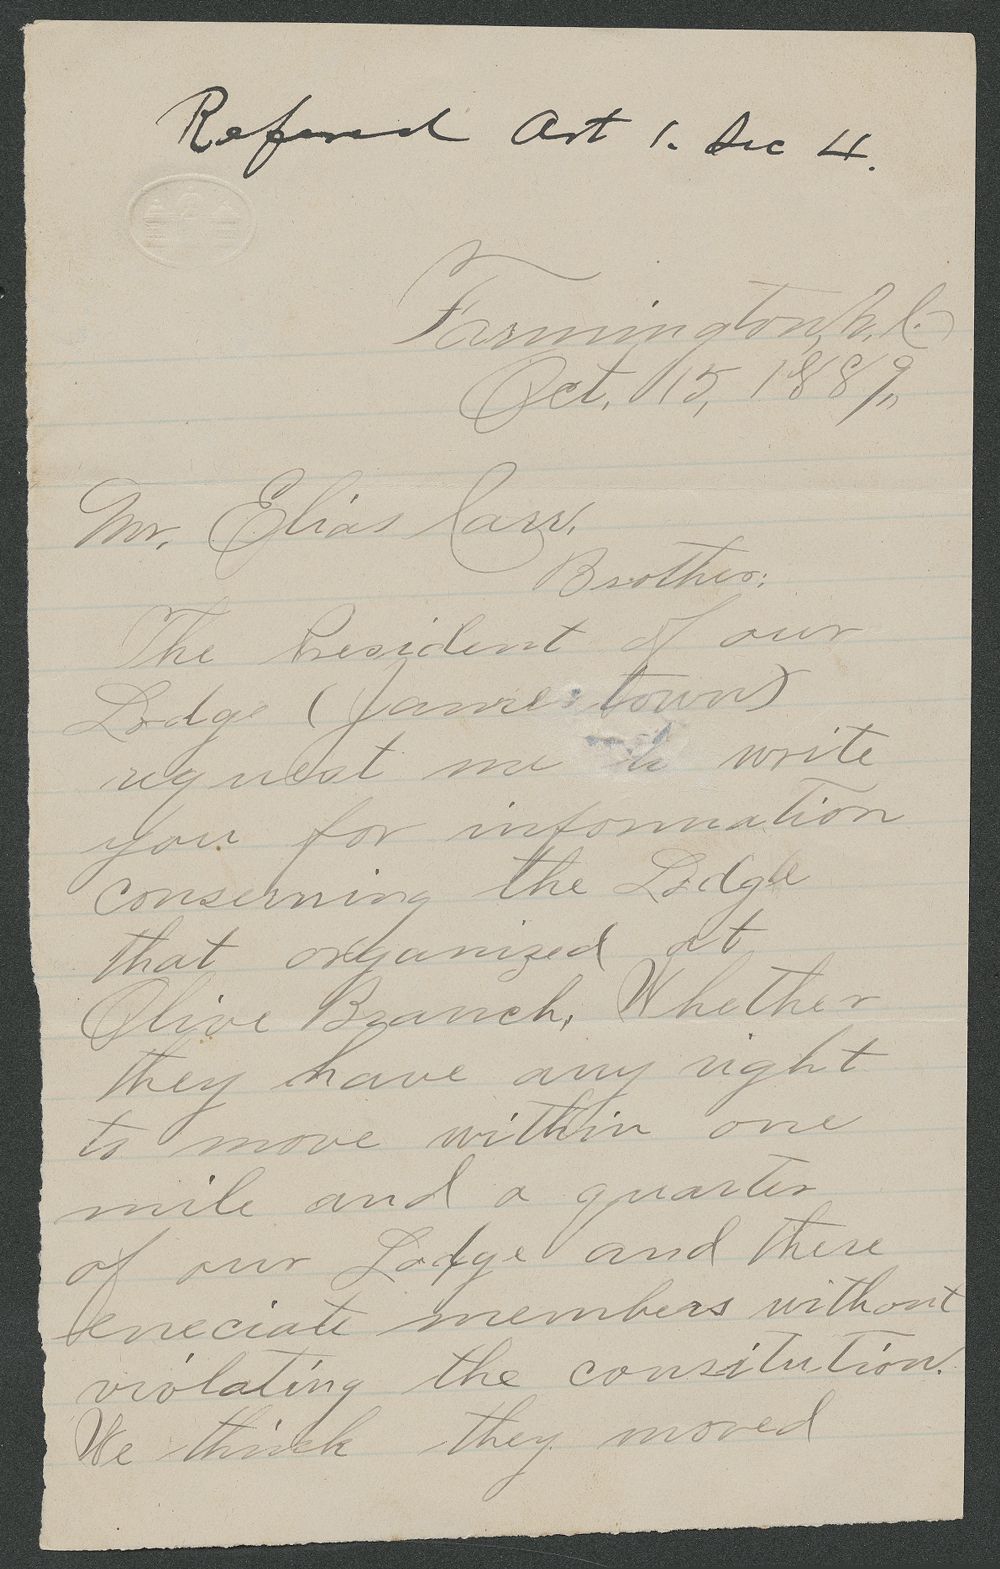 Refered Art 1. Sec 4.
Farmington, N.C.
Oct. 15, 1889,
Mr. Elias Carr,
Brother:
The President of our
Lodge (Jamestown)
request me to write
you for information
conserning the Lodge
that organized at
Olive Branch, Whether
they have any right
to move within one
mile and a quarter
of our Lodge and there
eneciate members without
violating the consitution.
We think they moved